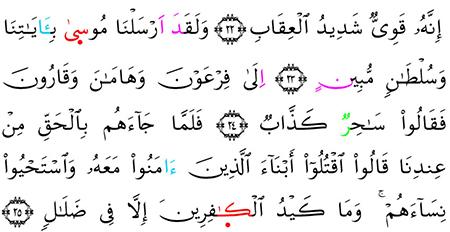 إِنَّهُۥ قَوِىٌّ شَدِيدُ ٱلْعِقَابِ ﴿٢٢﴾ وَلَقَدَ اَرْسَلْنَا مُوسىٰ بِـَٔايَٰتِنَا
وَسُلْطَٰنٍ مُّبِينٍ ﴿٢٣﴾ اِلَىٰ فِرْعَوْنَ وَهَٰمَٰنَ وَقَٰرُونَ
فَقَالُوا۟ سَٰحِرٌ كَذَّابٌ ﴿٢٤﴾ فَلَمَّا جَآءَهُم بِٱلْحَقِّ مِنْ
عِندِنَا قَالُوا۟ ٱقْتُلُوٓا۟ أَبْنَآءَ ٱلَّذِينَ ءَامَنُوا۟ مَعَهُۥ وَٱسْتَحْيُوا۟
نِسَآءَهُمْ ۚ وَمَا كَيْدُ ٱلْكَٰفِرِينَ إِلَّا فِى ضَلَٰلٍ ﴿٢٥﴾